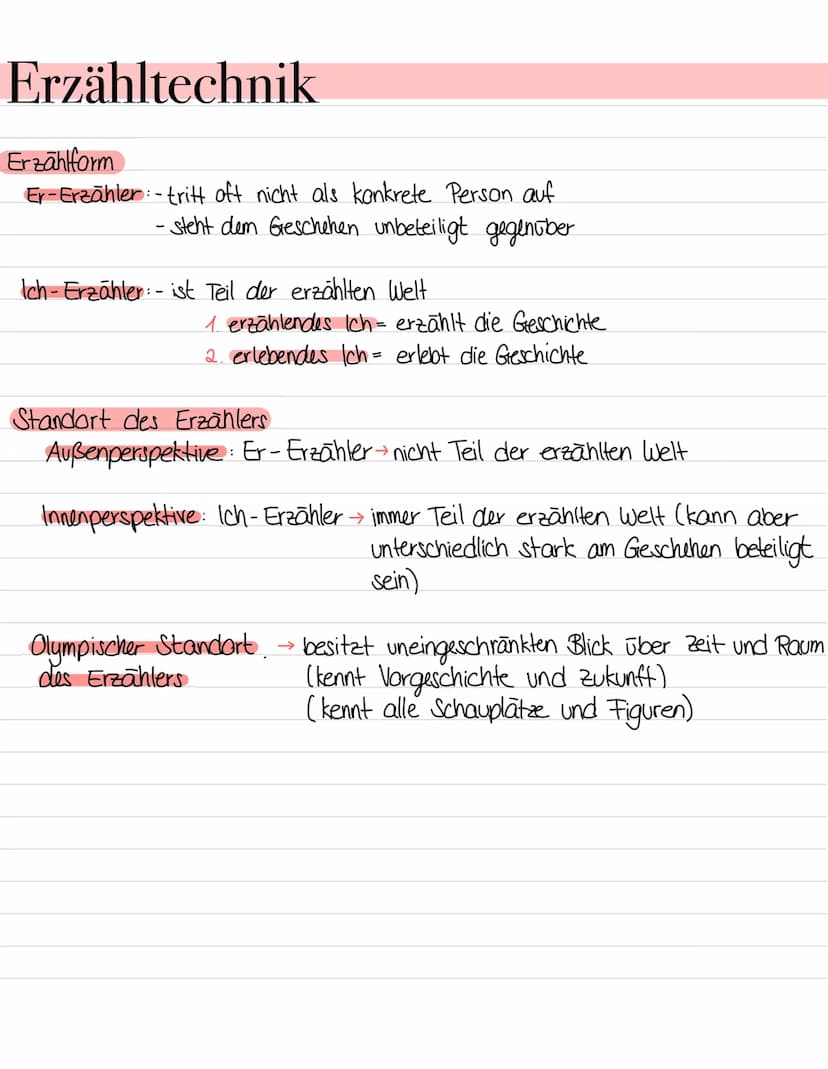 Erzähltechnik
Erzählform
Er-Erzähler: - tritt oft nicht als konkrete Person auf
- steht dem Geschehen unbeteiligt gegenüber
Ich-Erzähler: - ist Teil der erzählten Welt
1. erzählendes Ich = erzählt die Geschichte
2. erlebendes Ich = erlebt die Geschichte
Standort des Erzählers
Außenperspektive: Er-Erzähler → nicht Teil der erzählten Welt
Innenperspektive: Ich-Erzähler → immer Teil der erzählten Welt (kann aber
unterschiedlich stark am Geschehen beteiligt
sein)
Olympischer Standort. → besitzt uneingeschränkten Blick über Zeit und Raum
des Erzählers (kennt Vorgeschichte und Zukunft)
(kennt alle Schauplätze und Figuren)